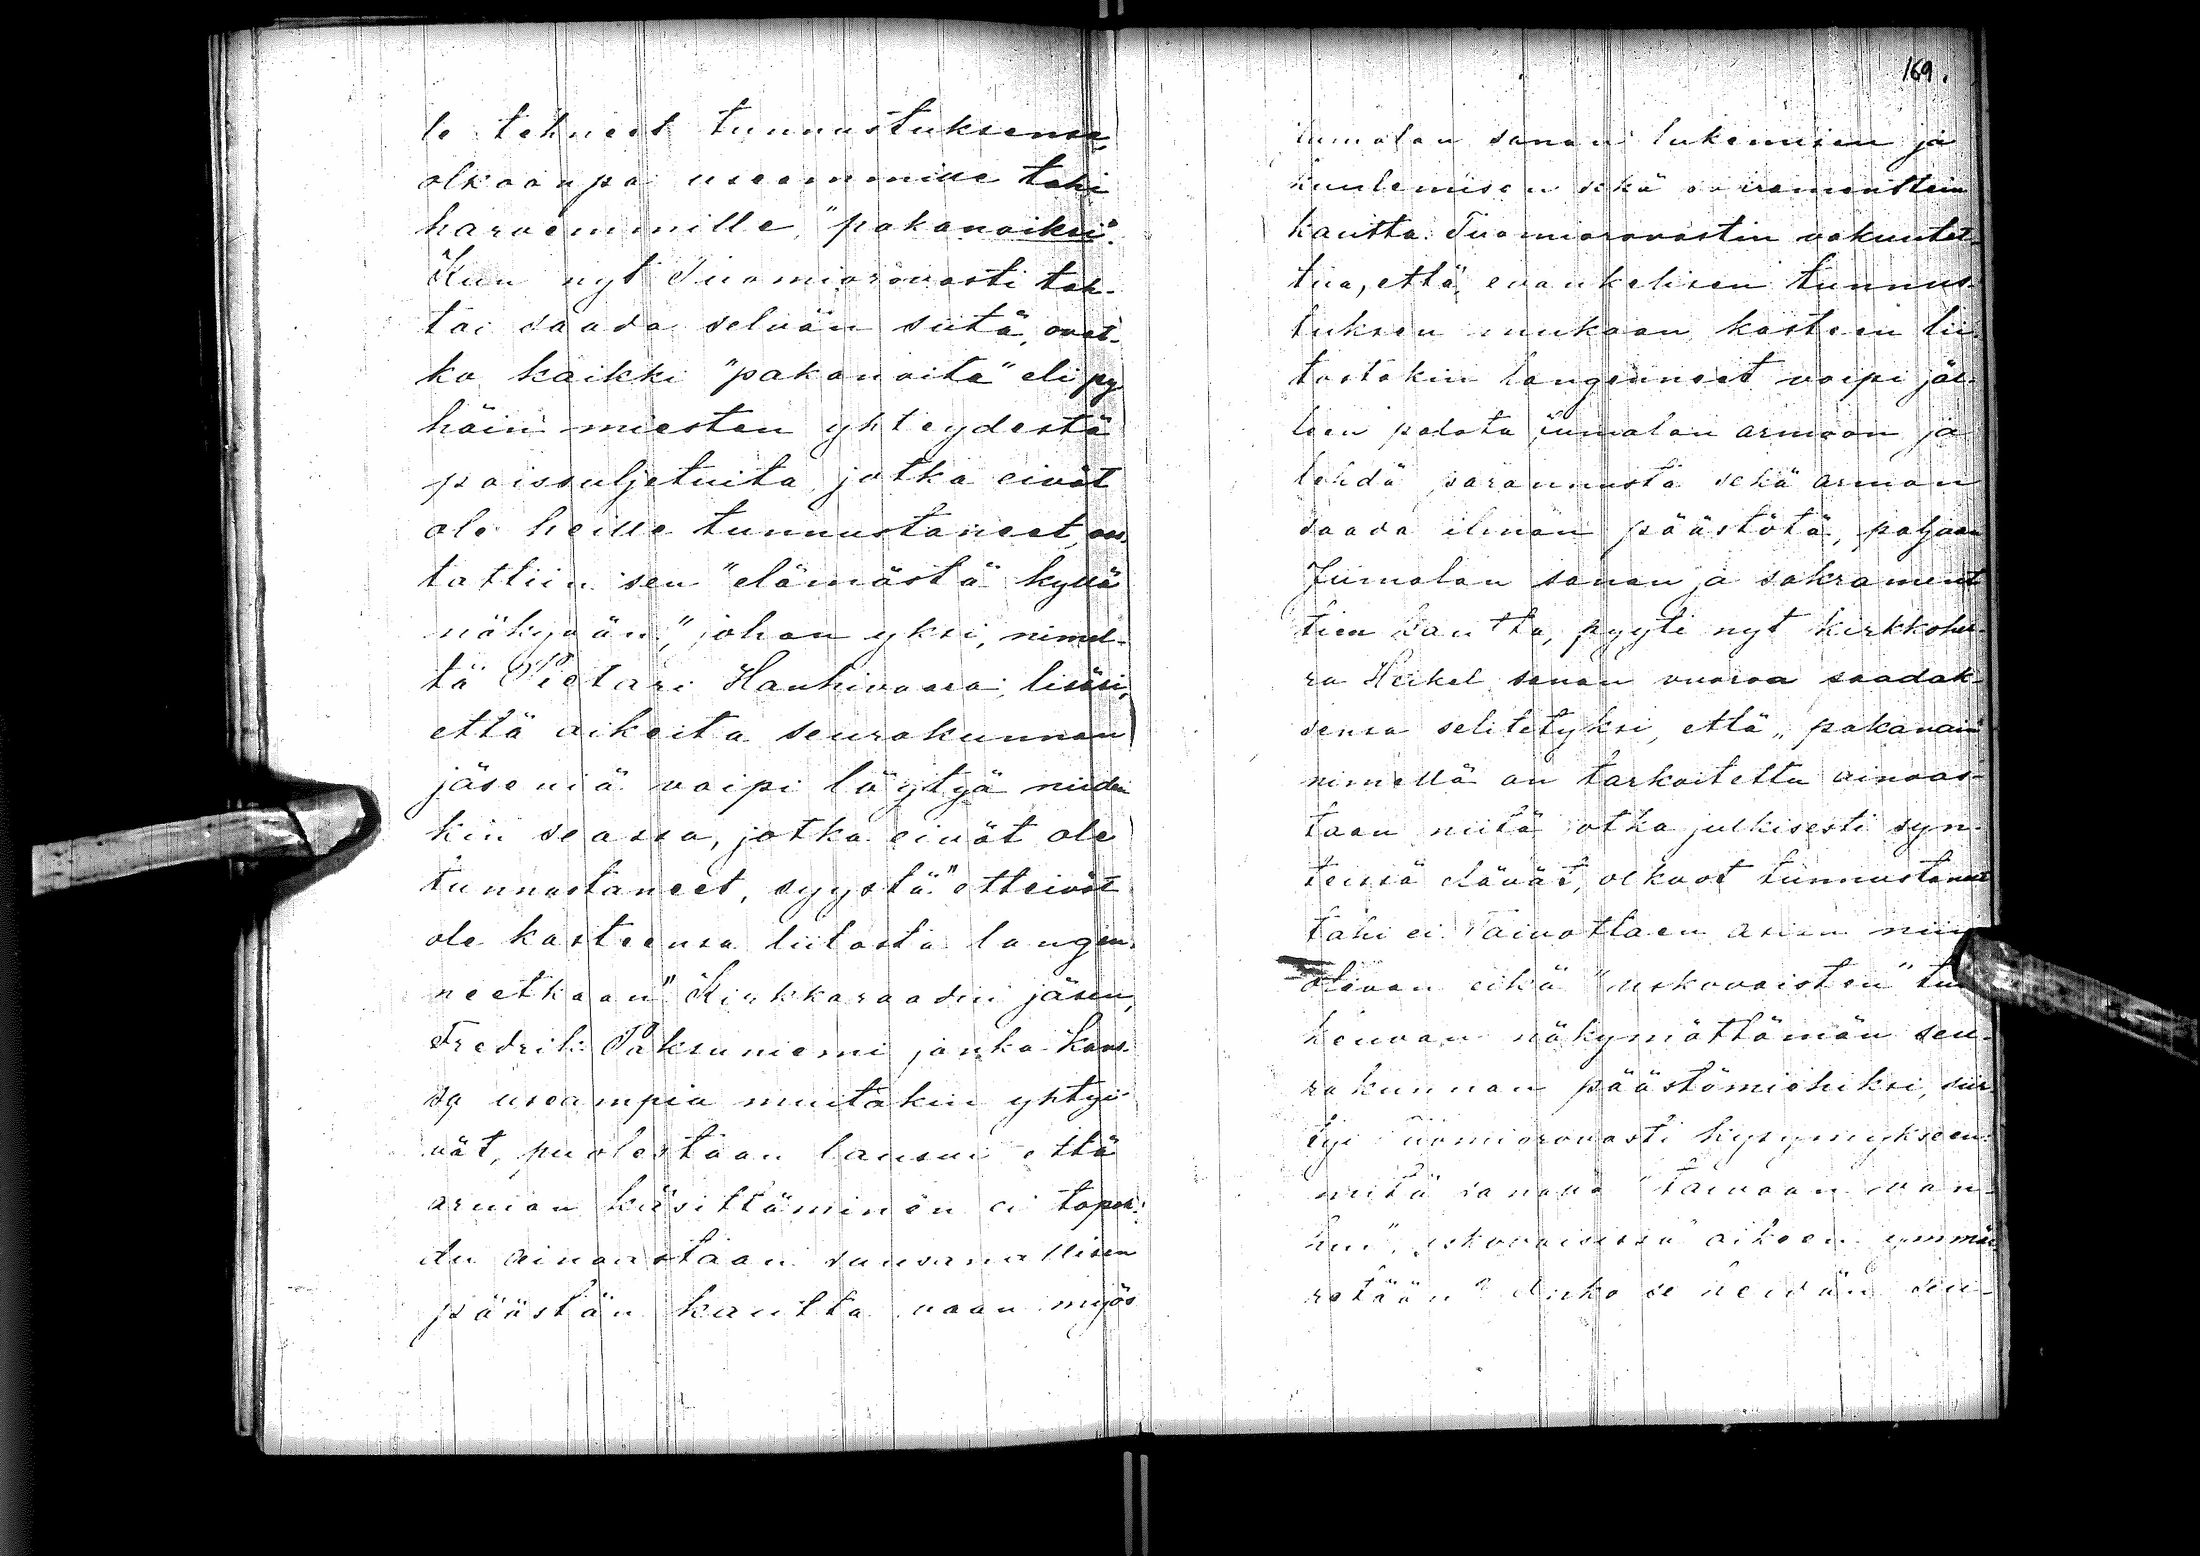 le tehneet tunnustuksensa,
olkoonpa useammille tahi
harvemmille, "pakanaiksi".
Kun nyt Tuomiorovasti tah-
toi saada selvän siitä, ovat-
ko kaikki "pakanoita" eli py
häin miesten yhteydestä
poissuljetuita, jotka eivät
ole heille tunnustaneet, vas-
tattiin sen "elämästä kyllä
näkyvän," johon yksi, nimel-
tä Pietari Hanhivaara, lisäsi,
että oikeita seurakunnan
jäseniä voipi löytyä niiden
kin seassa, jotka eivät ole
tunnustaneet, syystä "etteivät
ole kasteensa liitosta langen-
neetkaan" Kirkkoraadin jäsen,
Fredrik Paksuniemi jonka kans-
sa useampia muitakin yhtyi-
vät, puolestaan lausui että
armon käsittäminen ei tapah-
du ainoastaan suusanallisen
päästön kautta vaan myös
169.
jumalan sanan lukemisen ja
kuulemisen sekä sakramenttein
kautta. Tuomiorovastin vakuutet-
tua, että evankelisen tunnus-
tuksen mukaan kasteen lii-
tostakin langenneet voipi jäl-
leen palata jumalan armoon ja
tehdä parannusta sekä armon
saada ilman päästötä, paljaan
Jumalan sanan ja sakrament
tien kautta, pyyti nyt kirkkoher-
ra Heikel sanan vuoroa saadak-
sensa selitetyksi, että "pakanain
nimellä on tarkoitettu ainoas-
taan niitä jotka julkisesti syn-
teissä elävät, olkoot tunnustaneet
tahi ei. Toivottaen asian niin
olevan eikä "uskovaisten"
keuvan näkymättömän seu-
rakunnan päästömiehiksi, siir-
tyi Tuomiorovasti kysymykseen:
mitä sanana "taivaan van-
hin", uskovaisissa oikeen ymmär
retään? Onko se heidän seu-